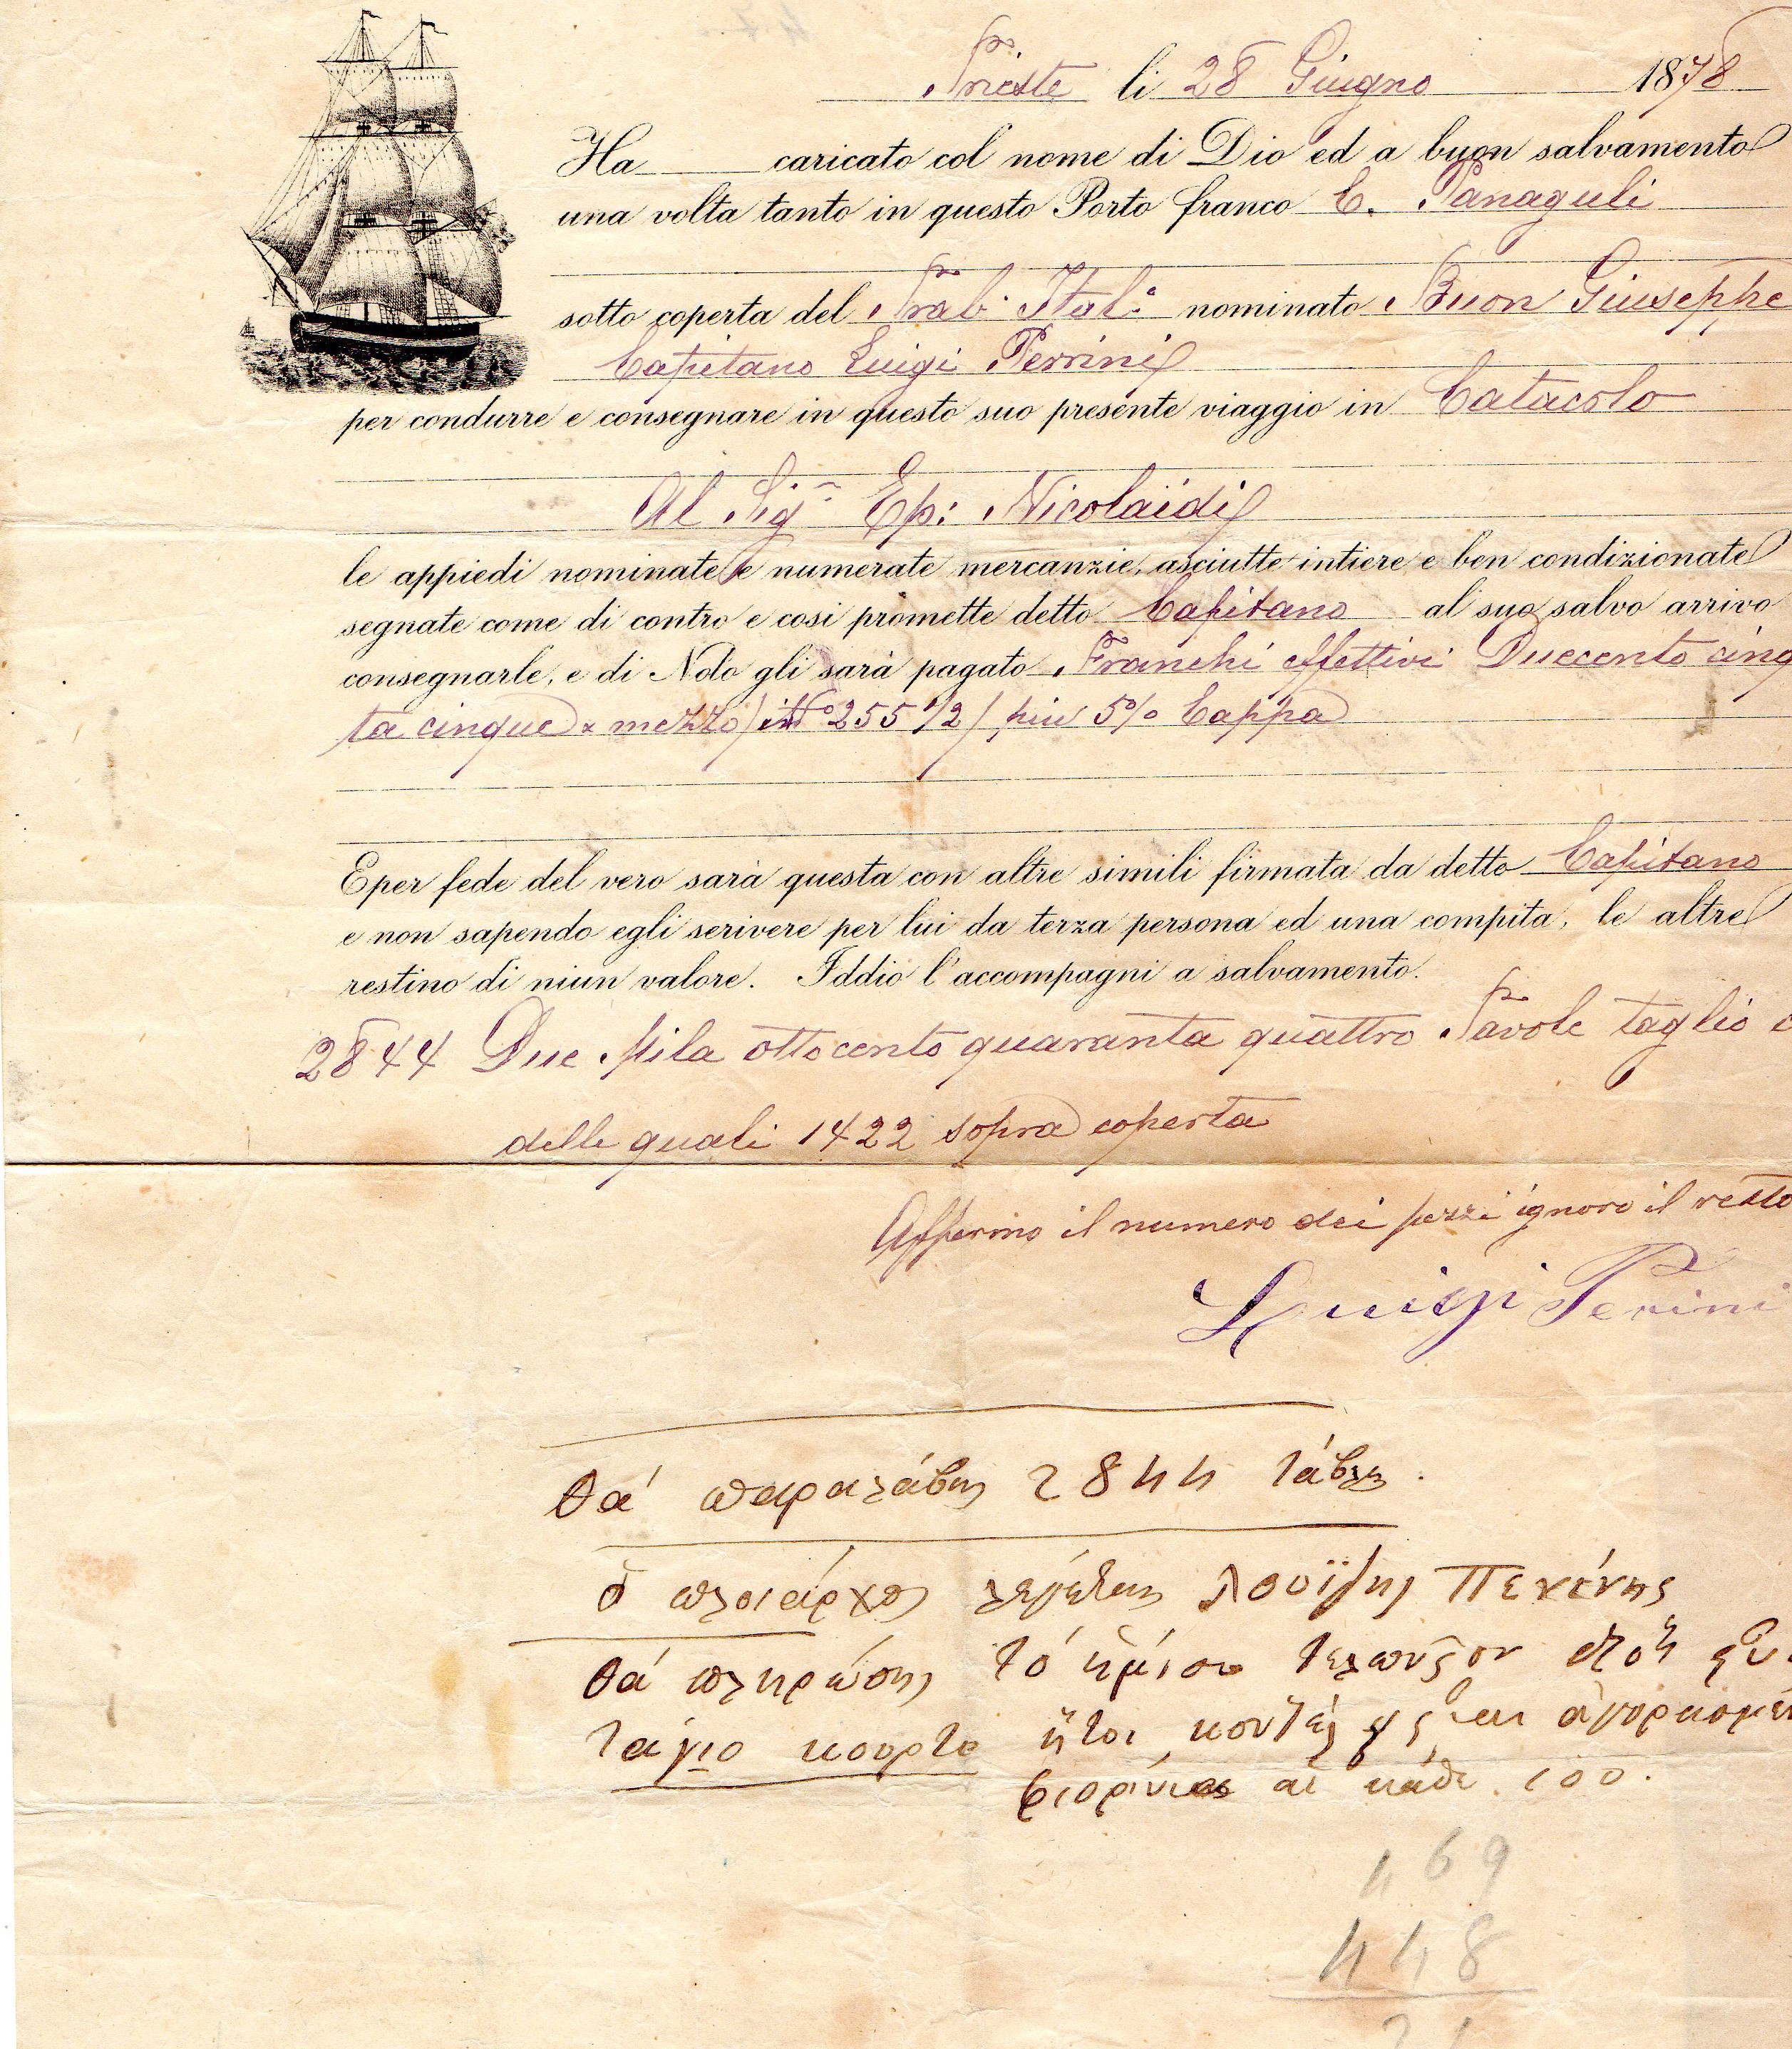 Trieste li 28 Giugno 1878
Ha caricato col nome di Dio ed a buon salvamento
una volta tanto in questo Porto franco C. Panaguli
sotto coperta del Trab. Ital.º nominato Buon Giuseppe
Capitano Luigi Perrini
per condurre e consegnare in questo suo presente viaggio in Catacolo
Al Sigr. Ep: Nicolaïdi
le appiedi nominate e numerate mercanzie, asciutte intiere e ben condizionate
segnate come di contro e cosi promette detto Capitano al suo salvo arrivo
consegnarle, e di Nolo gli sarà pagato Franchi effettivi Duecento cinq
ta cinque e mezzo 255 1/2 / piu 5% Cappa
E per fede del vero sarà questa con altre simili firmata da detto Capitano
e non sapendo egli scrivere per lui da terza persona ed una compita, le altre
restino di niun valore. Iddio l'accompagni a salvamento.
2844 Due Mila ottocento quaranta quattro Tavole taglio
delle quali 1422 sopra coperta
Affermo il numero dei pezzi ignoro il resto
Luigi Perini
θά παραλάβης 2844 τάβλες.
ὁ πλοίαρχος λέγεται Λουίζης
θά πληρώσης τό ἥμισυ
τάγιο κουρτο ἤτοι
φιορίνια κάθε 100.
469
448
21